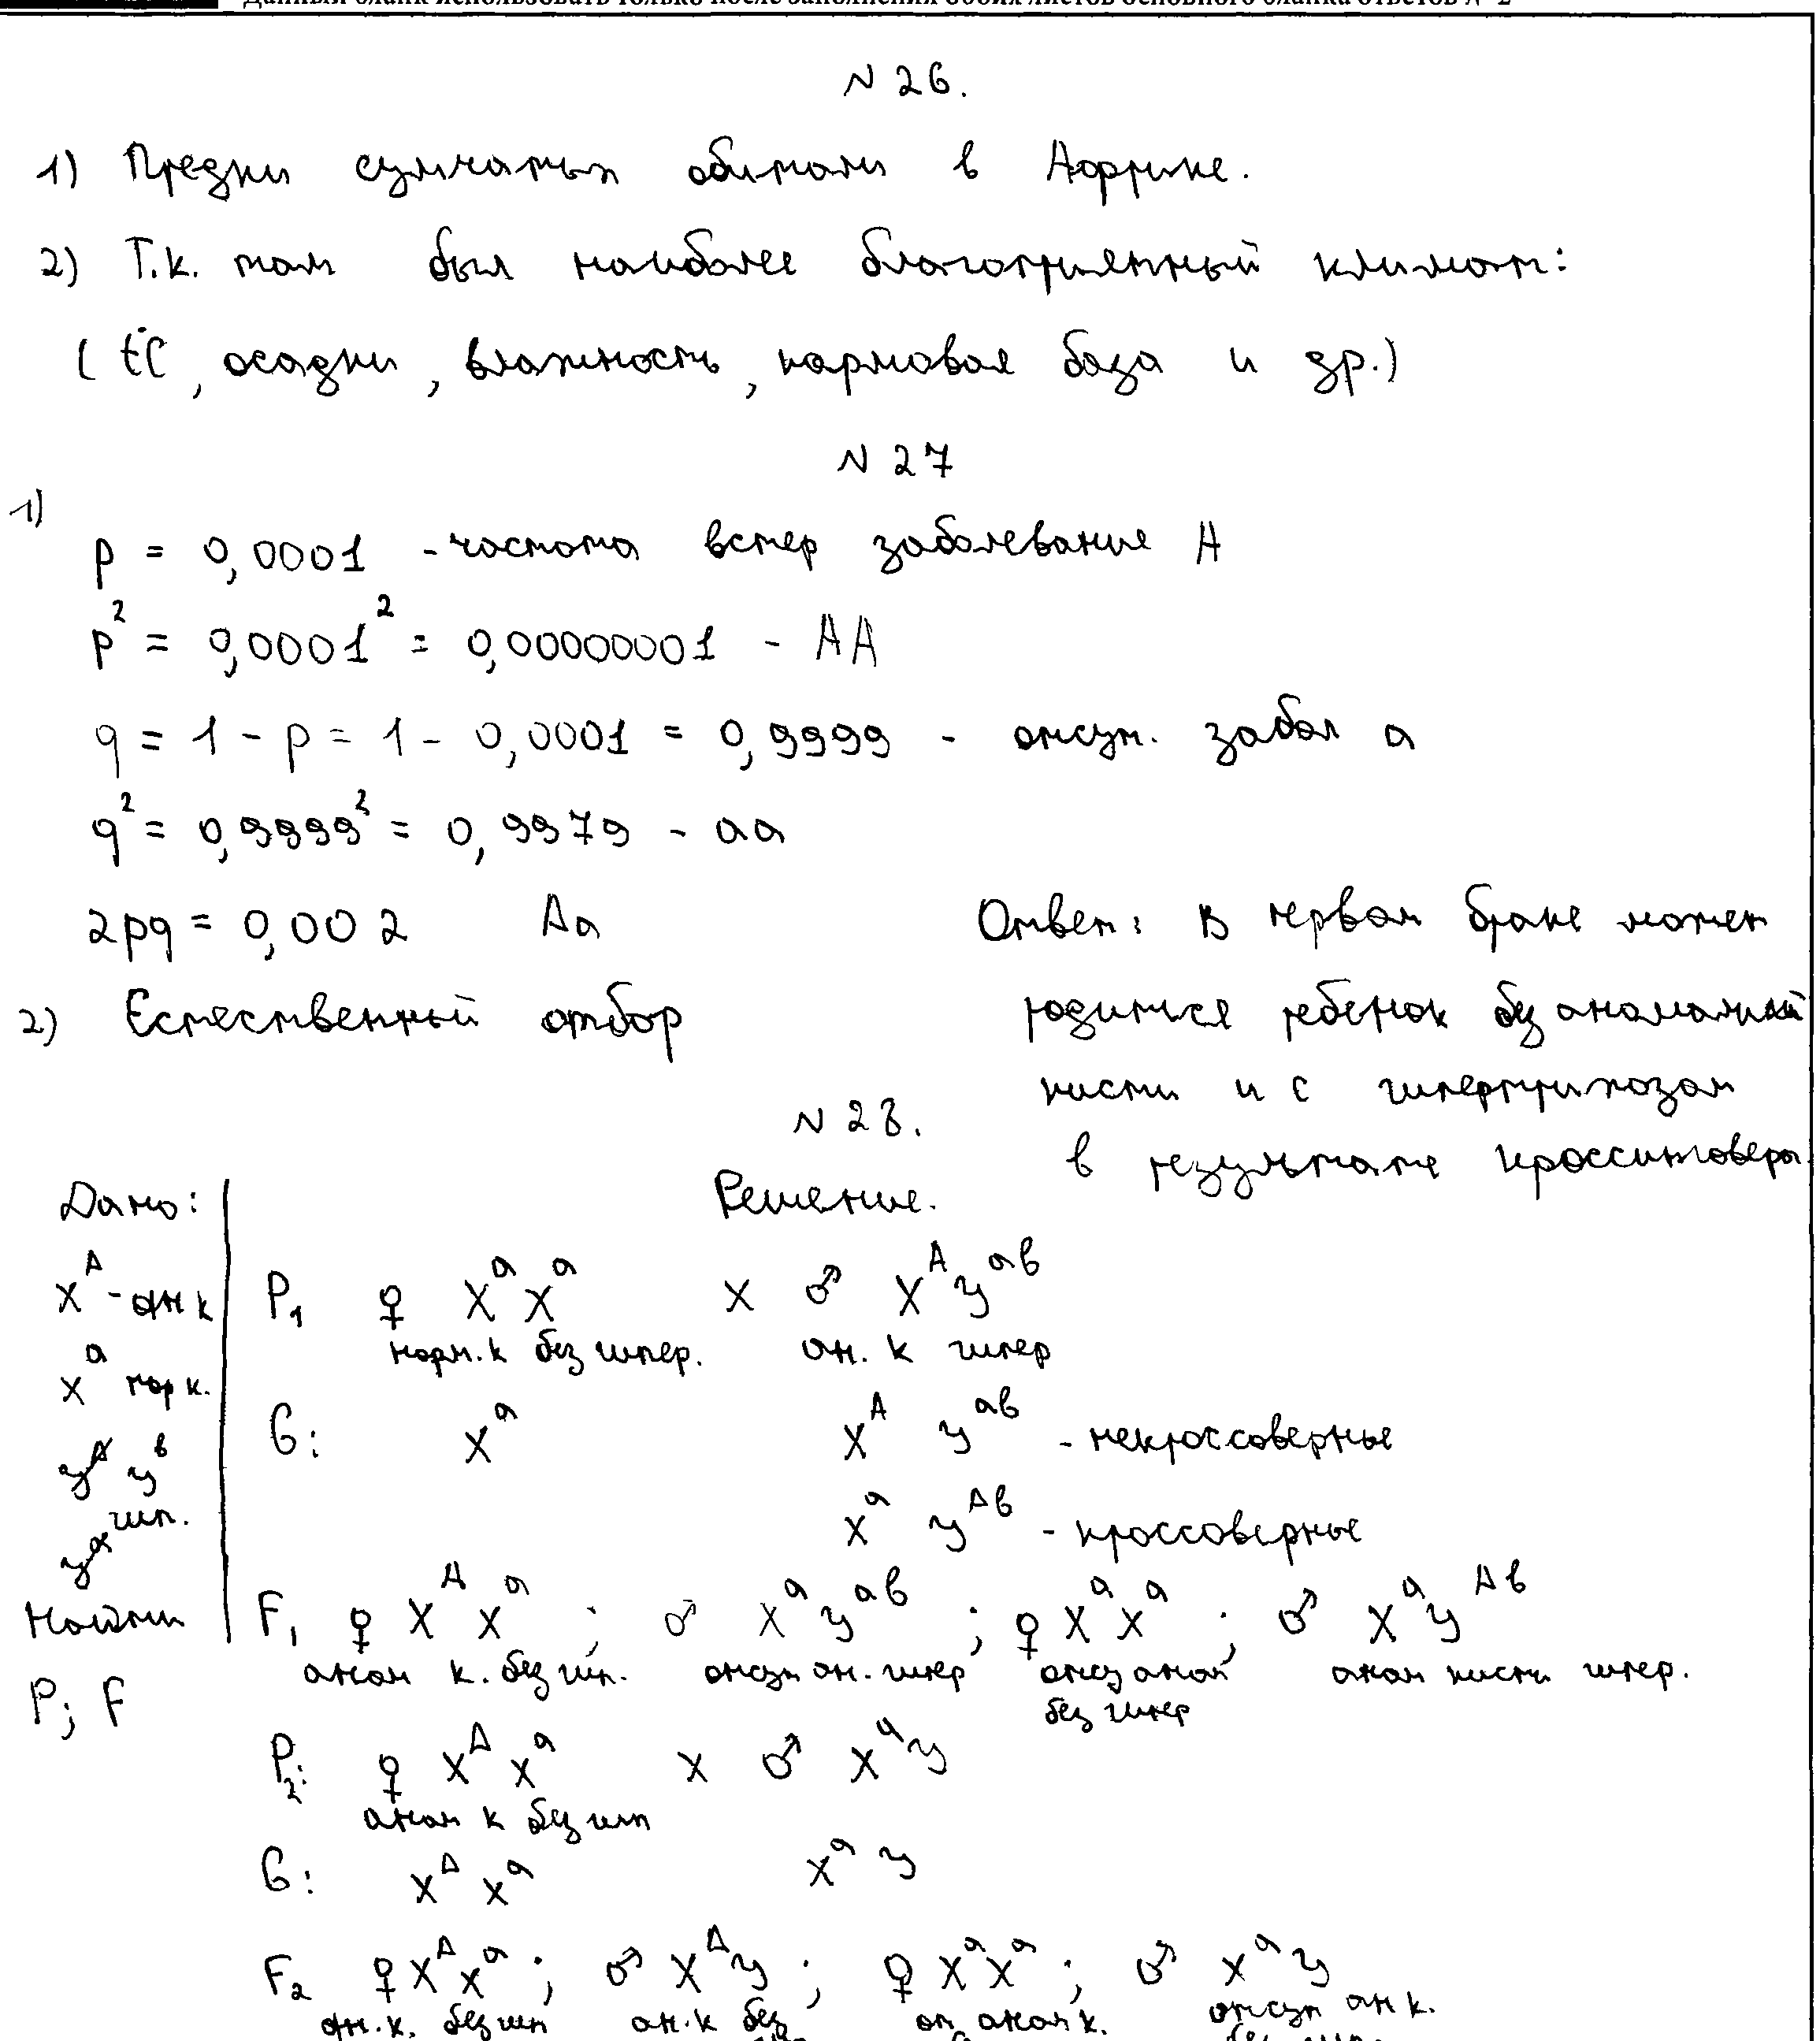 Данный бланк использовать только после заполнения обоих листов основного бланка ответов № 2
N 26.
1) Предки сумчатых обитали в Африке.
2) Т.к. там был наиболее благоприятный климат:
( t°C, осадки, влажность, кормовая база и др.)
N 27
1)
p = 0,0001 - частота встер заболевание A
p² = 0,0001² = 0,00000001 - AA
q = 1 - p = 1 - 0,0001 = 0,9999 - отсут. забол a
q² = 0,9999² = 0,9979 - aa
2pq = 0,002 Aa
2) Естественный отбор
Ответ: В первом браке может
родиться ребенок без аномалий
кисти и с гипертрихозом
в результате кроссинговера
N 28.
Дано:
X^A - ан к
X^a нор к.
y^b
гип.
Найти
P; F
Решение.
P₁ ♀ X^a X^a x ♂ X^A y^ab
норм. к без гипер. ан. к гипер
G: X^a X^A y^ab - некроссоверные
X^a y^Ab - кроссоверные
F₁ ♀ X^A X^a ; ♂ X^a y^ab ; ♀ X^a X^a ; ♂ X^a y^Ab
аном к. без гип. отсут ан. гипер отсу аном без гипер аном кисти гипер.
P₂: ♀ X^A X^a x ♂ X^a y
аном к без гип
G: X^A X^a X^a y
F₂ ♀ X^A X^a ; ♂ X^A y ; ♀ X^a X^a ; ♂ X^a y
ан. к. без гип ан. к без от аном к. отсут ан к.